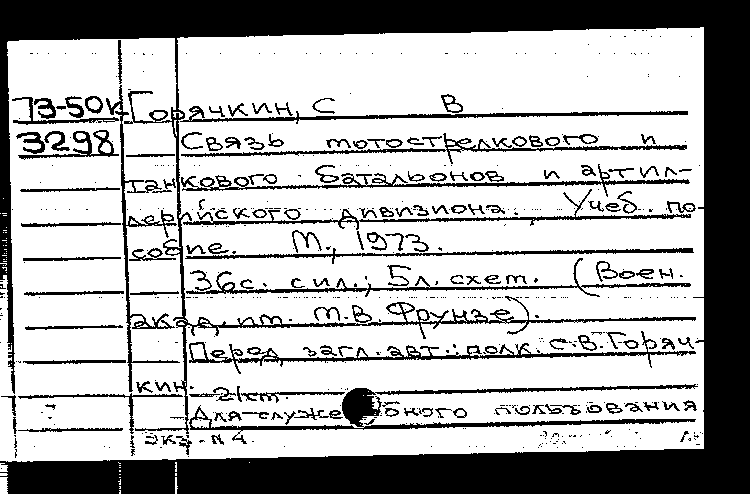 73-50к Горячкин, С В
3298 Связь мотострелкового и
танкового батальонов и артил-
лерийского дивизиона. Учеб. по-
собие. М., 1973.
36с. с ил.; 5л. схем. (Воен.
акад. им. М.В. Фрунзе).
Перед загл. авт.: полк. С.В. Горяч-
кин.
Для служебного пользования
экз. N 4.